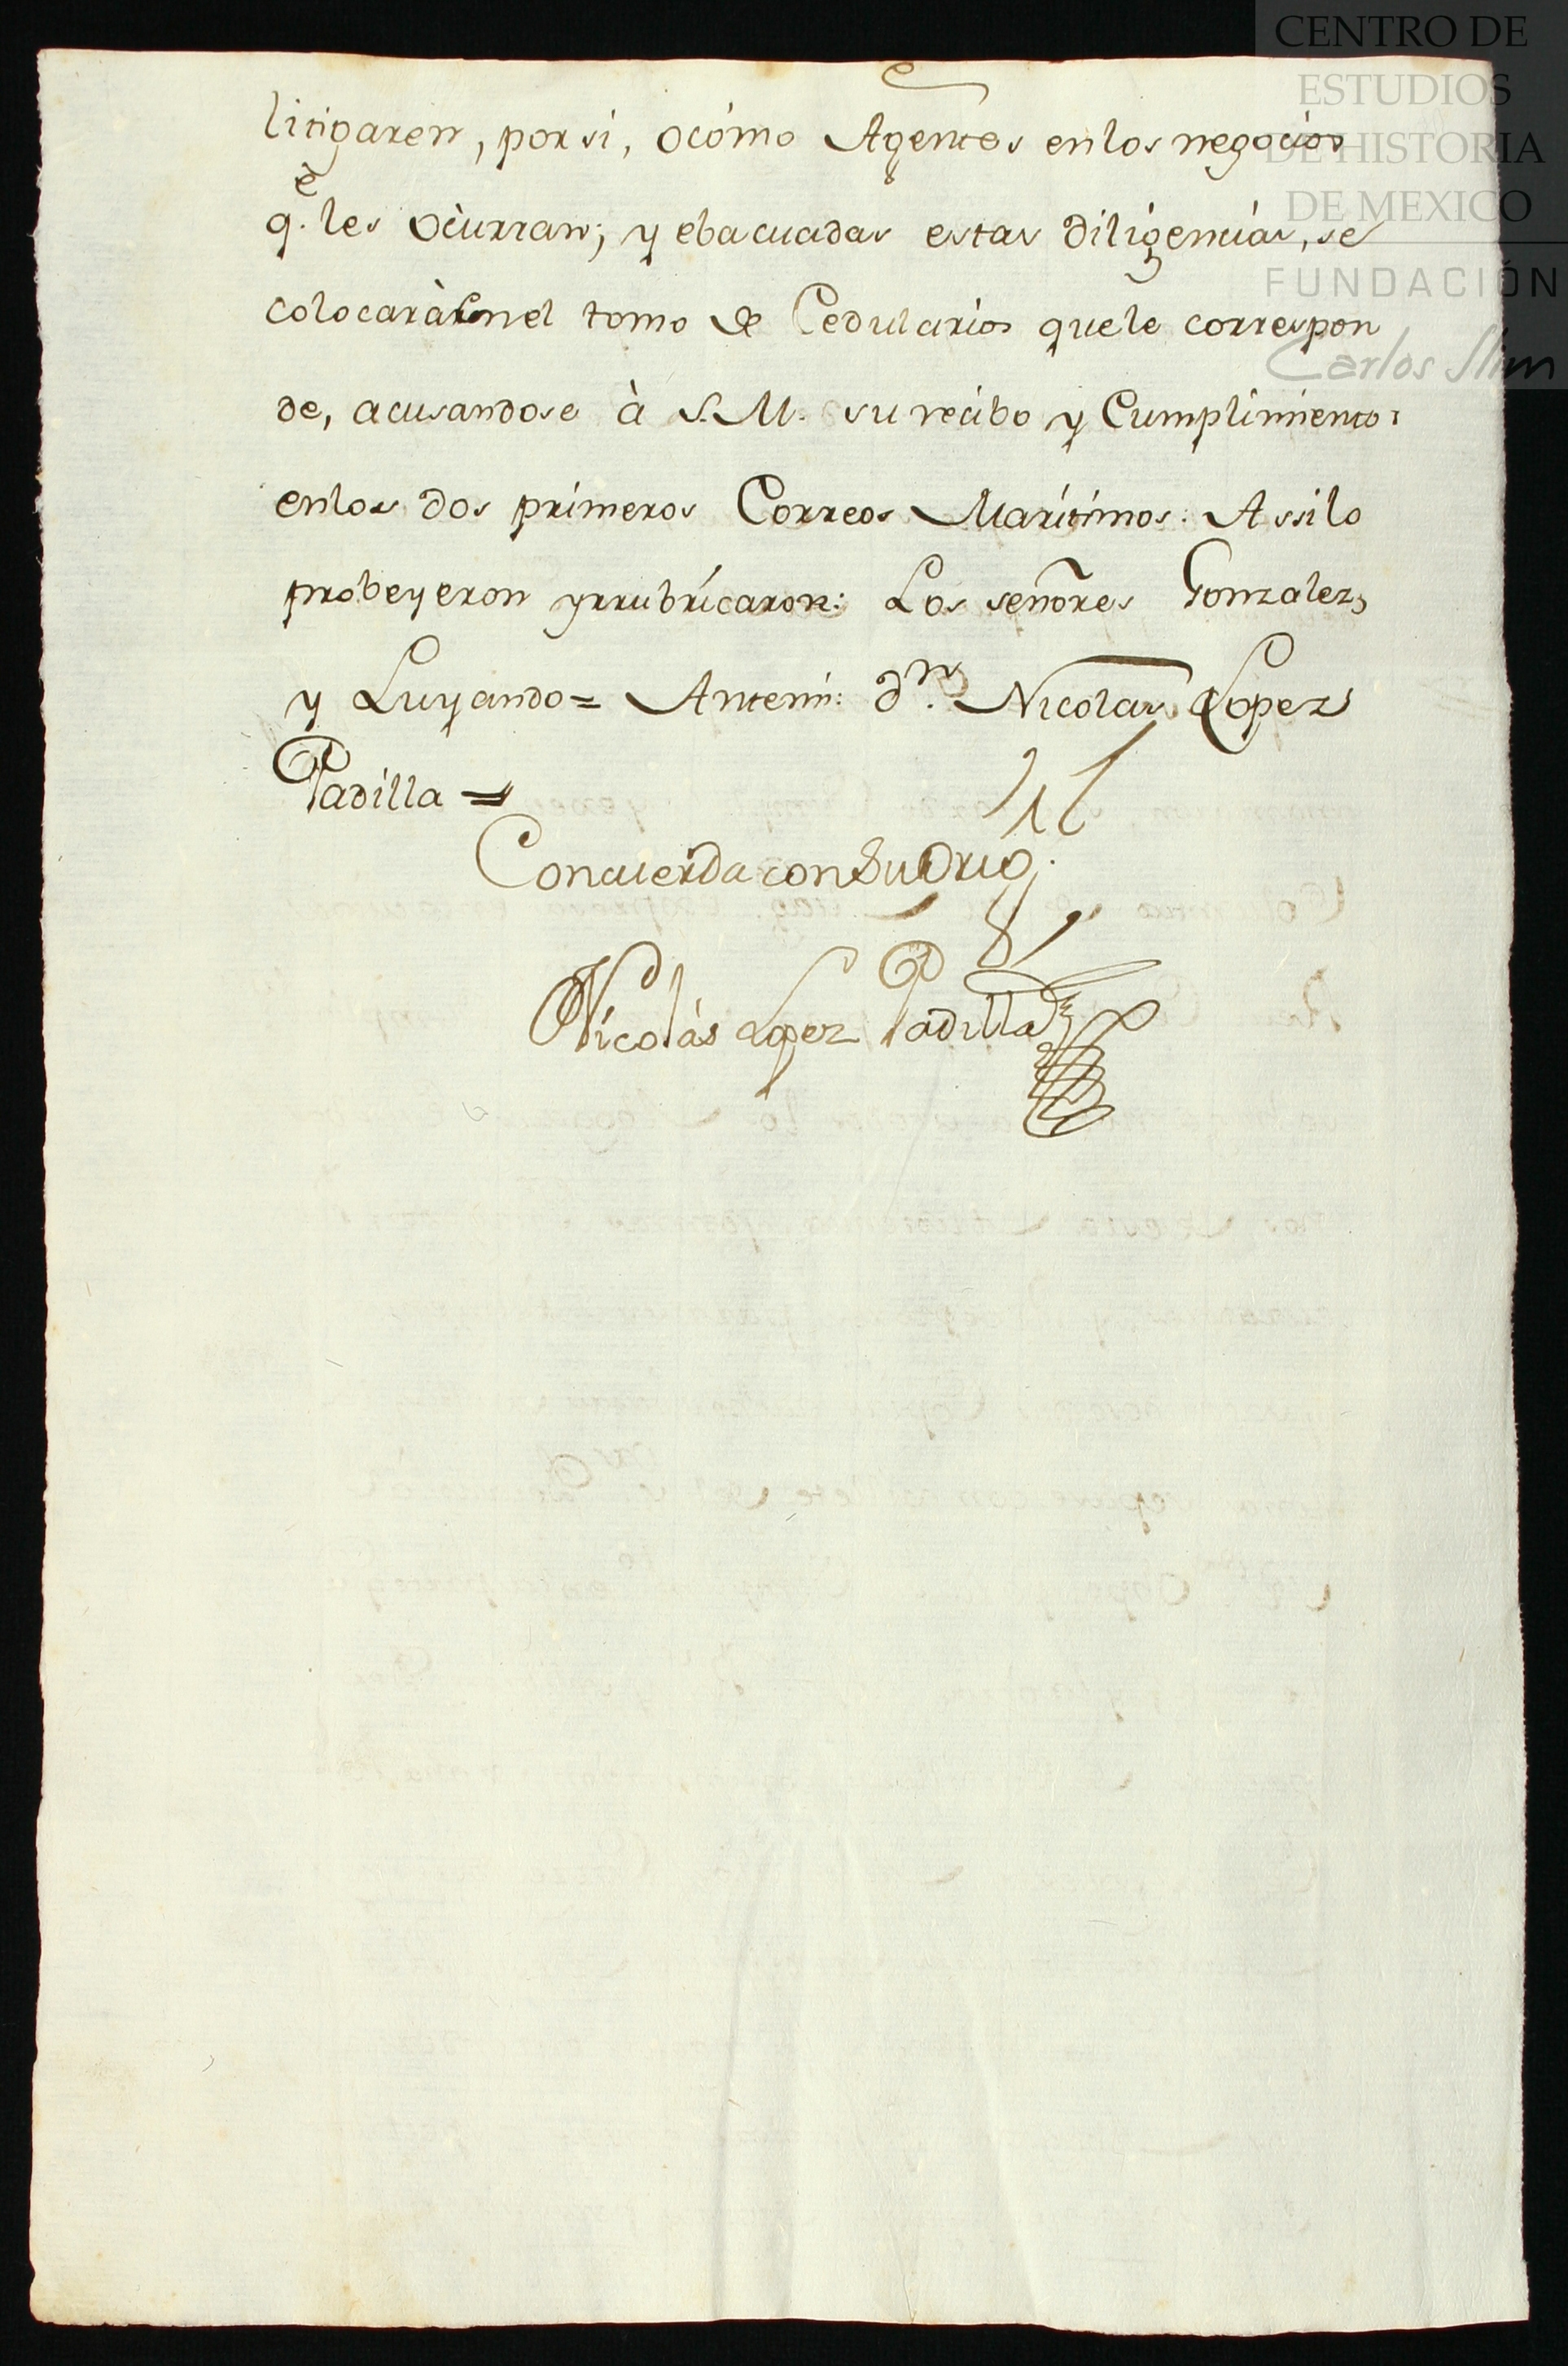 CENTRO DE
ESTUDIOS
DE HISTORIA
DE MEXICO
FUNDACIÓN
Carlos Slim
litigaren, por si, ocómo Agentes enlos negocios
q.e les ocurran; y ebacuadas estas diligencias, se
colocarà en el tomo de Cedularios quele correspon
de, acusandose à S.M. su recibo y Cumplimiento
enlos dos primeros Correos Marítimos: Assilo
probeyeron yrrubrícaron: Los señores Gonzalez,
y Luyando = Antemi: dn. Nicolas Lopez
Padilla =
Concuerda con su Orig.
Nicolás Lopez Padilla